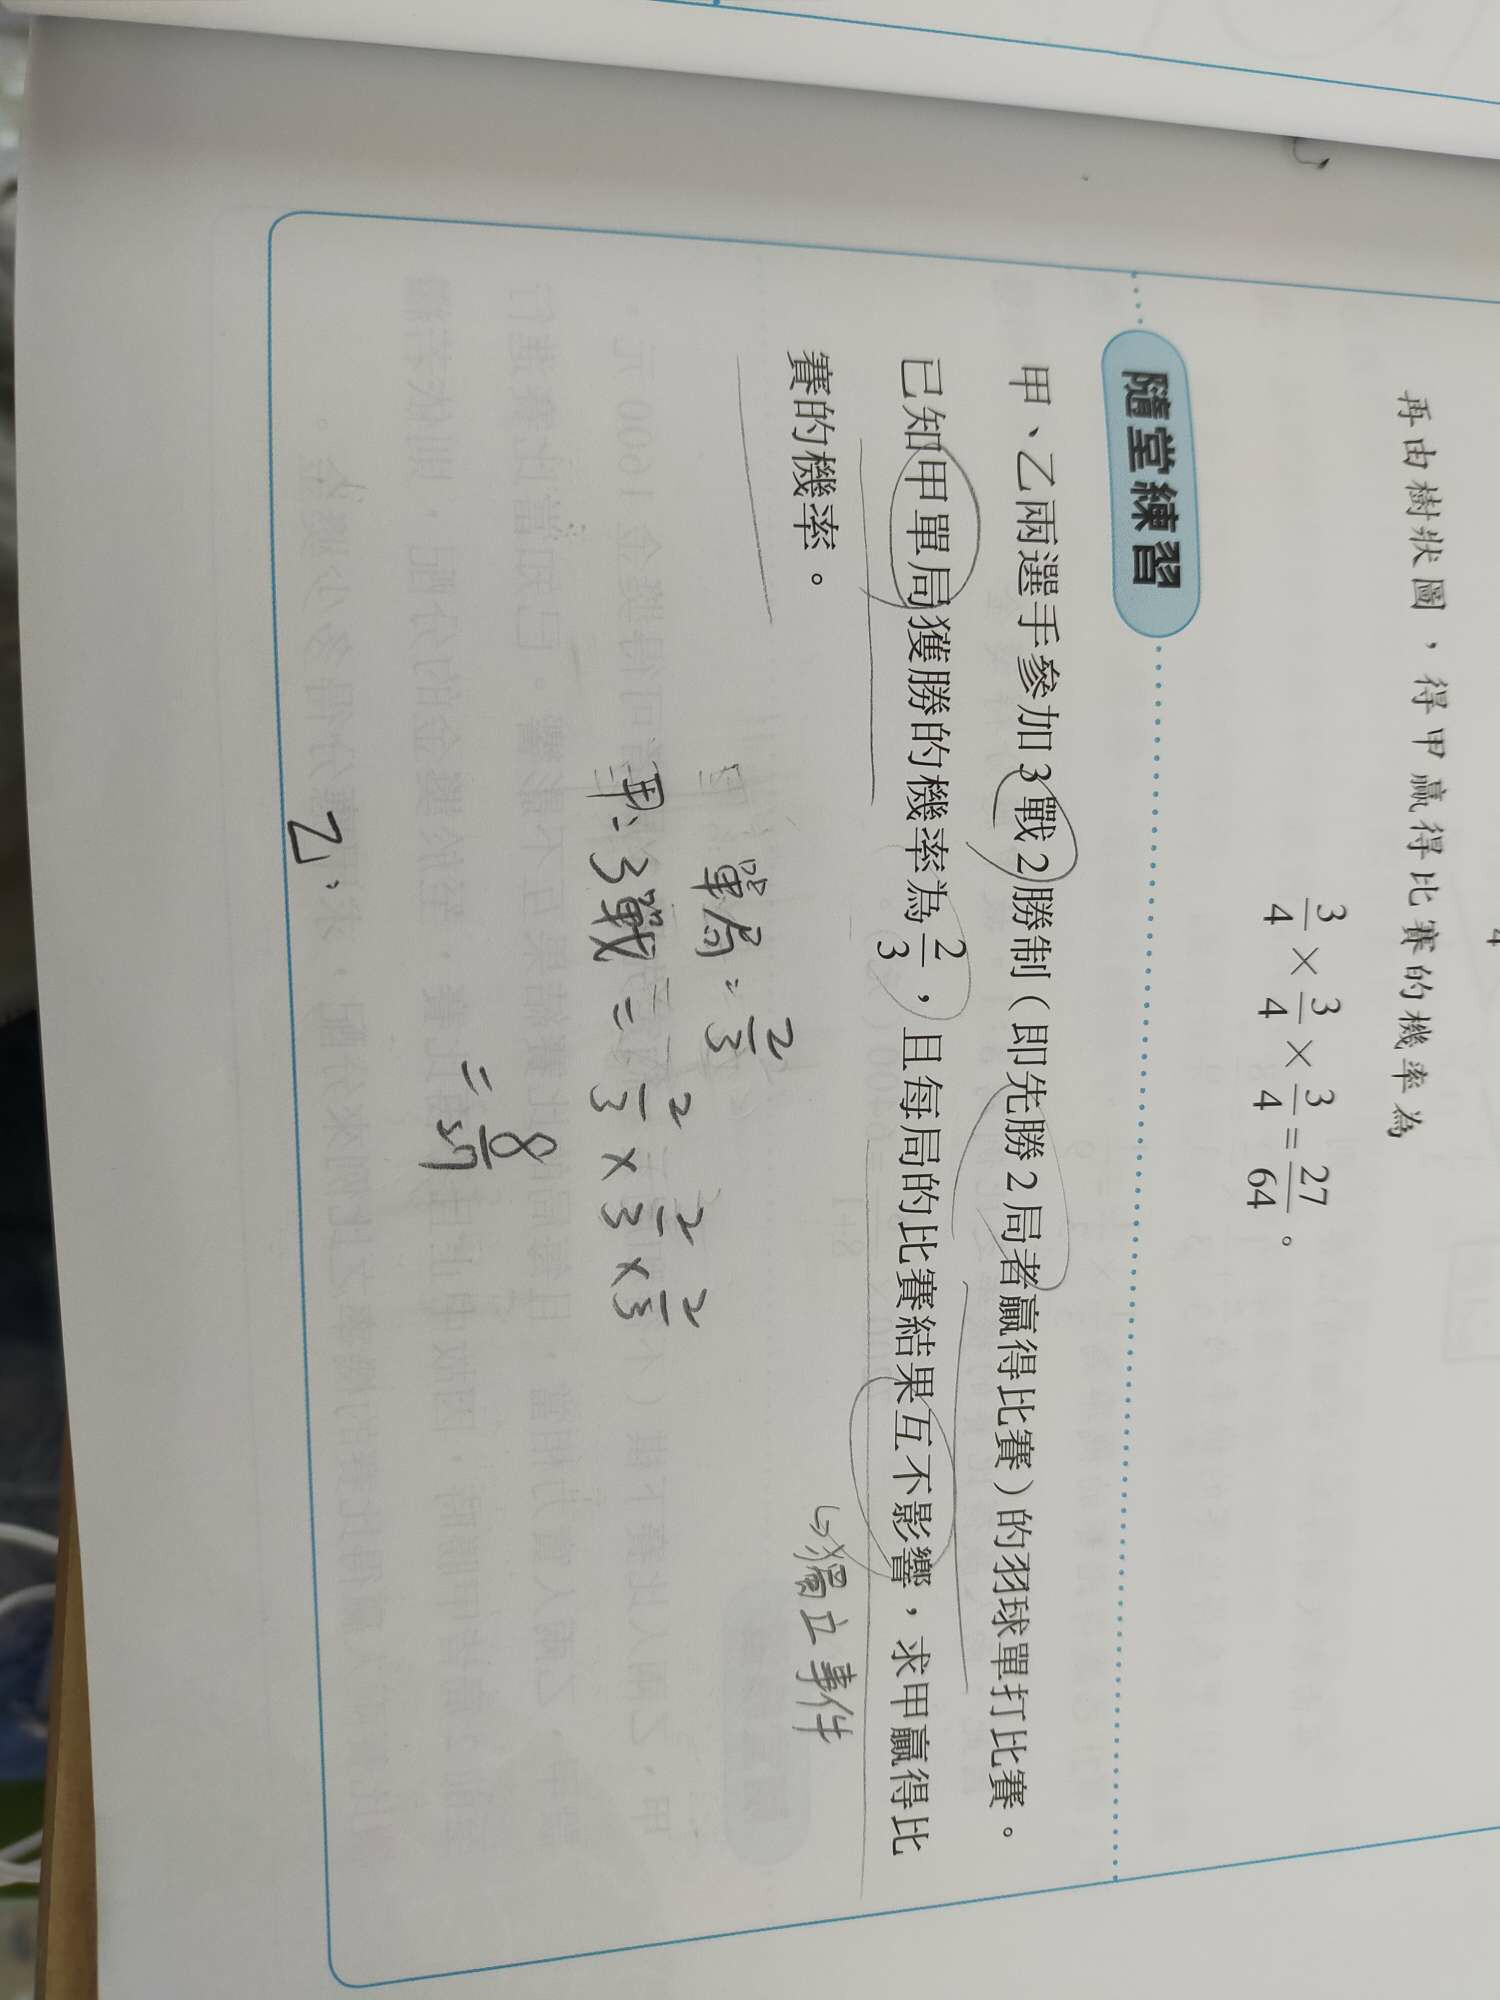 再由樹狀圖，得甲贏得比賽的機率為
3/4 × 3/4 × 3/4 = 27/64 。
隨堂練習
甲、乙兩選手參加3戰2勝制（即先勝2局者贏得比賽）的羽球單打比賽。
已知甲單局獲勝的機率為2/3，且每局的比賽結果互不影響，求甲贏得比
賽的機率。
↳獨立事件
單局 = 2/3
甲、3戰 = 2/3 × 2/3 × 2/3
= 8/27
乙、